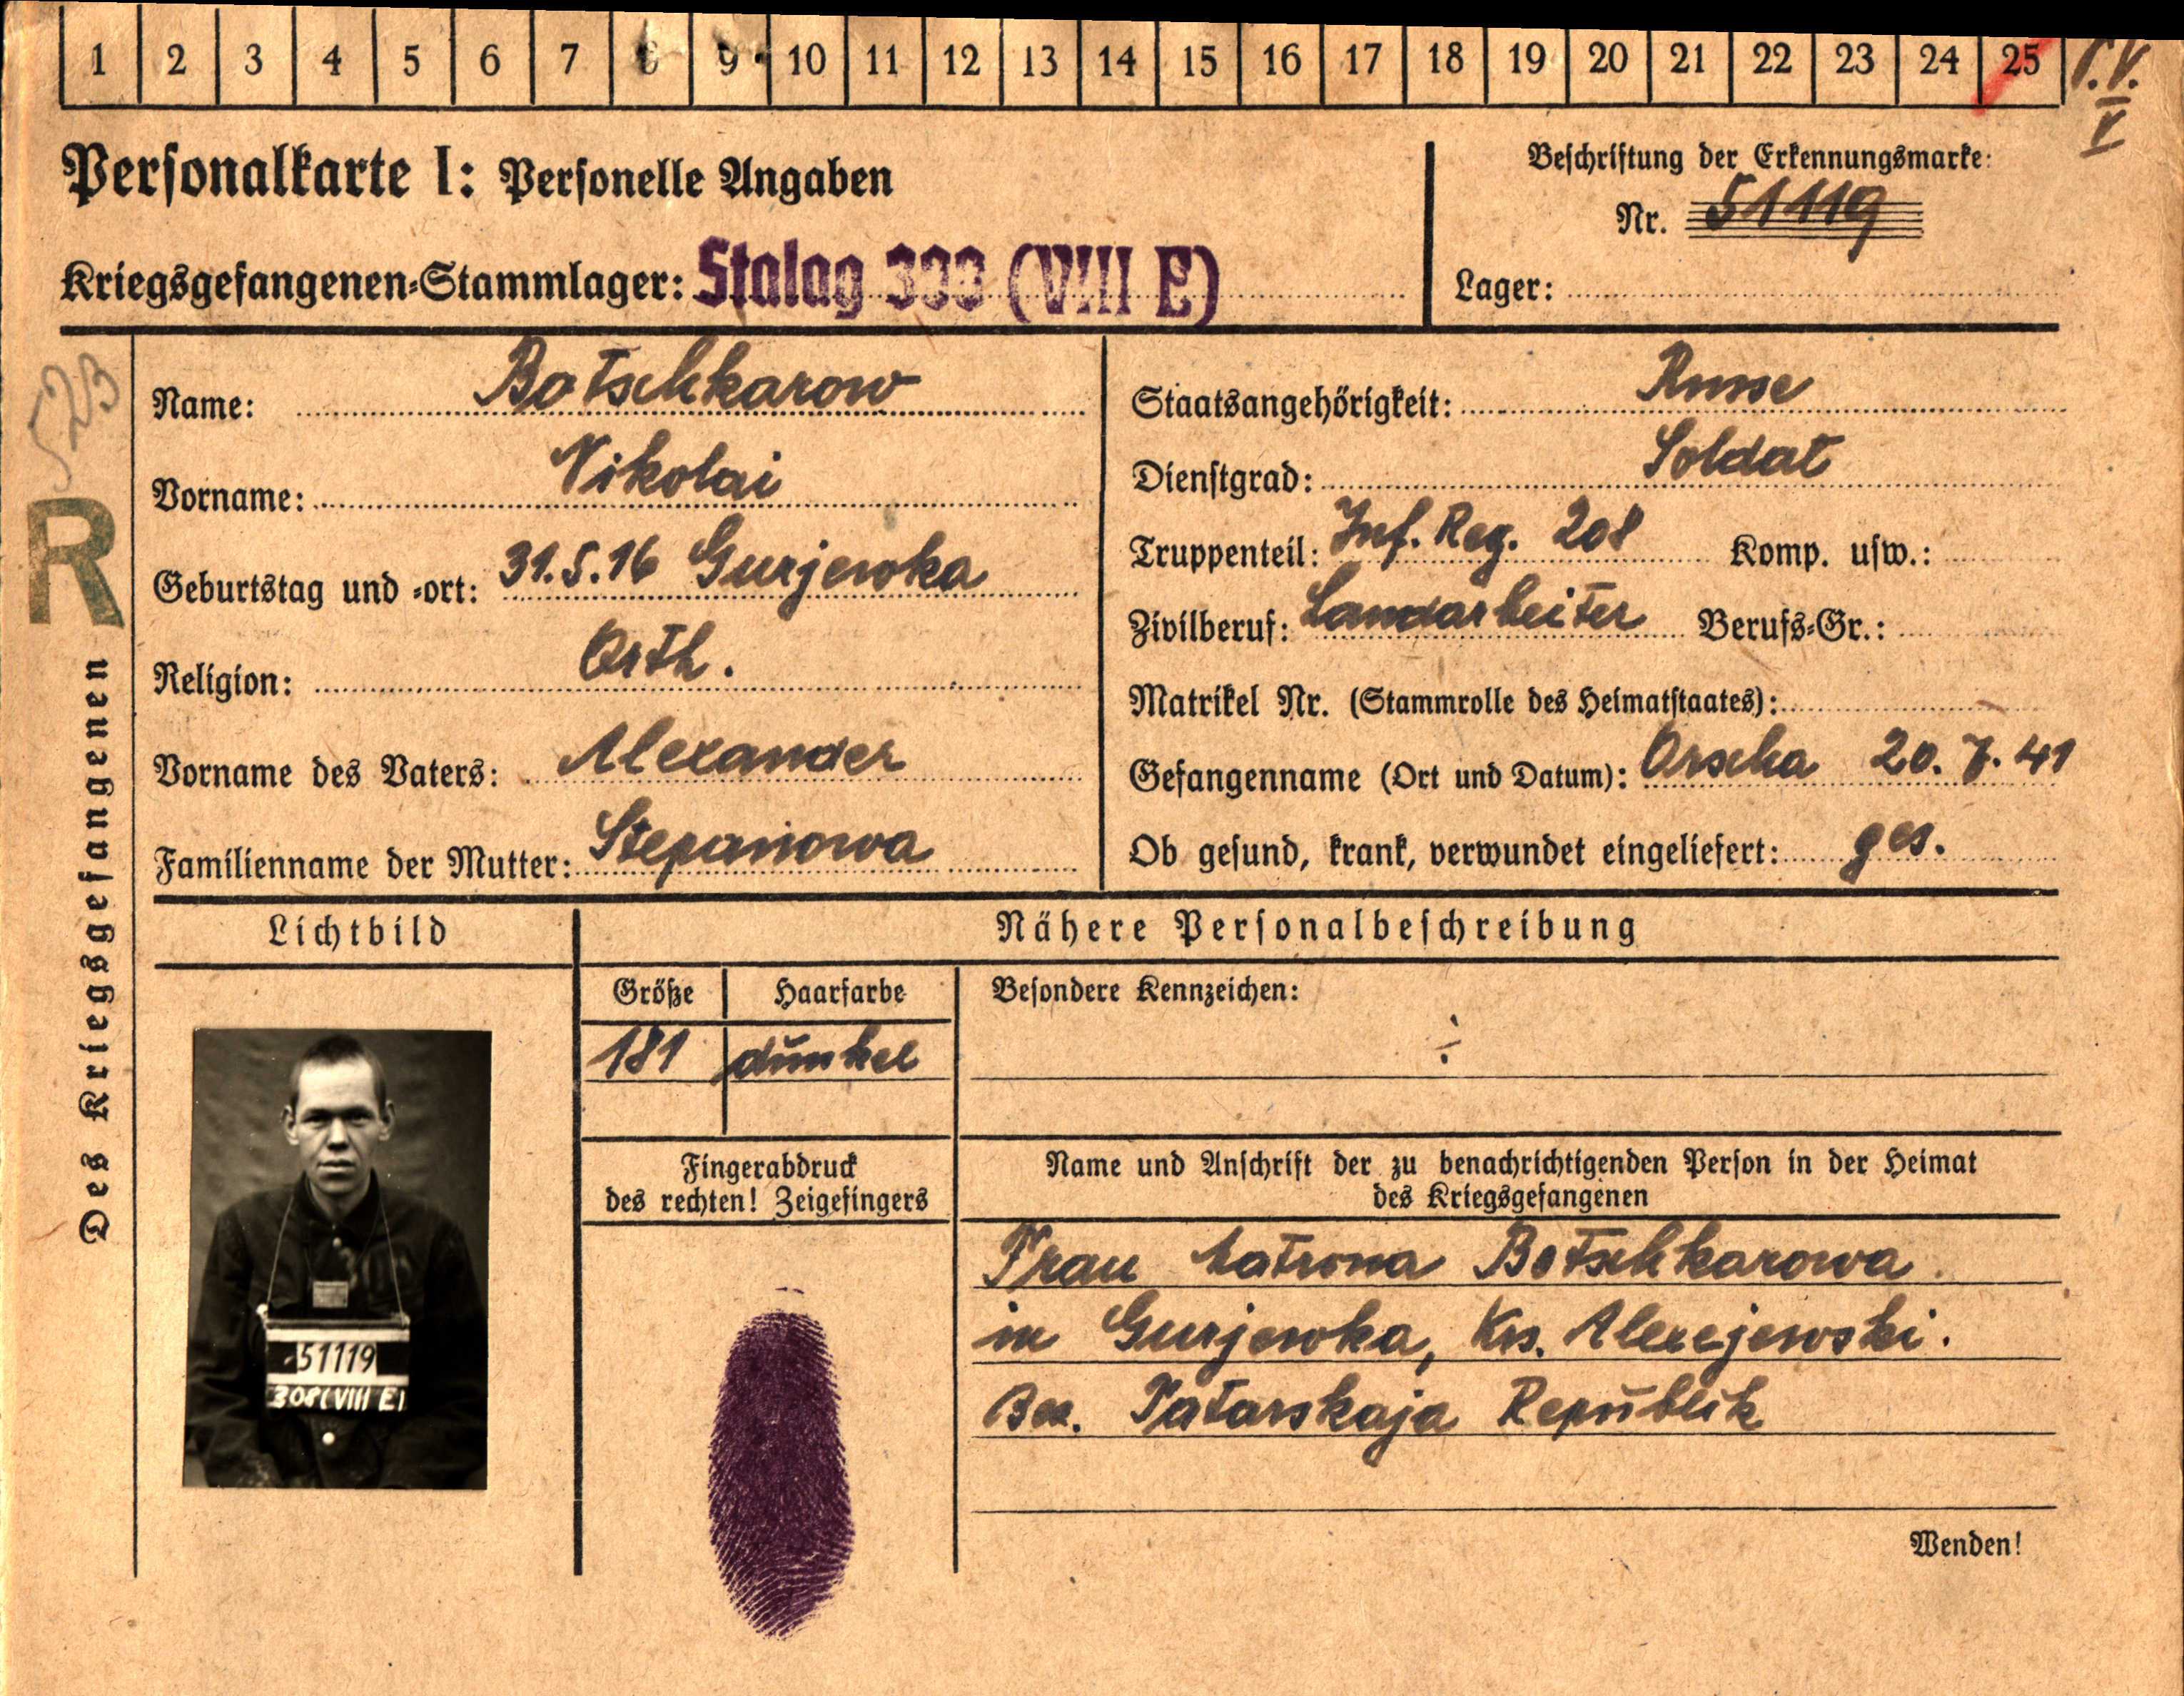 1 2 3 4 5 6 7 8 9 10 11 12 13 14 15 16 17 18 19 20 21 22 23 24 25
V
Personalkarte I: Personelle Angaben
Beschriftung der Erkennungsmarke:
Nr. 51119
Kriegsgefangenen-Stammlager: Stalag 308 (VIII E)
Lager:
523
R
Des Kriegsgefangenen
Name: Botschkarow
Vorname: Nikolai
Geburtstag und -ort: 31.5.16 Gurjewka
Religion: Orth.
Vorname des Vaters: Alexander
Familienname der Mutter: Stepanowa
Staatsangehörigkeit: Russe
Dienstgrad: Soldat
Truppenteil: Inf. Reg. 208 Komp. usw.:
Zivilberuf: Landarbeiter Berufs-Gr.:
Matrikel Nr. (Stammrolle des Heimatstaates):
Gefangenname (Ort und Datum): Orscha 20.7.41
Ob gesund, krank, verwundet eingeliefert: ges.
Lichtbild
51119
308(VIII E)
Nähere Personalbeschreibung
Größe Haarfarbe
181 dunkel
Besondere Kennzeichen:
Fingerabdruck
des rechten! Zeigefingers
Name und Anschrift der zu benachrichtigenden Person in der Heimat
des Kriegsgefangenen
Frau Matrona Botschkarowa
in Gurjewka, Krs. Alexejewski.
Bez. Tatarskaja Republik
Wenden!